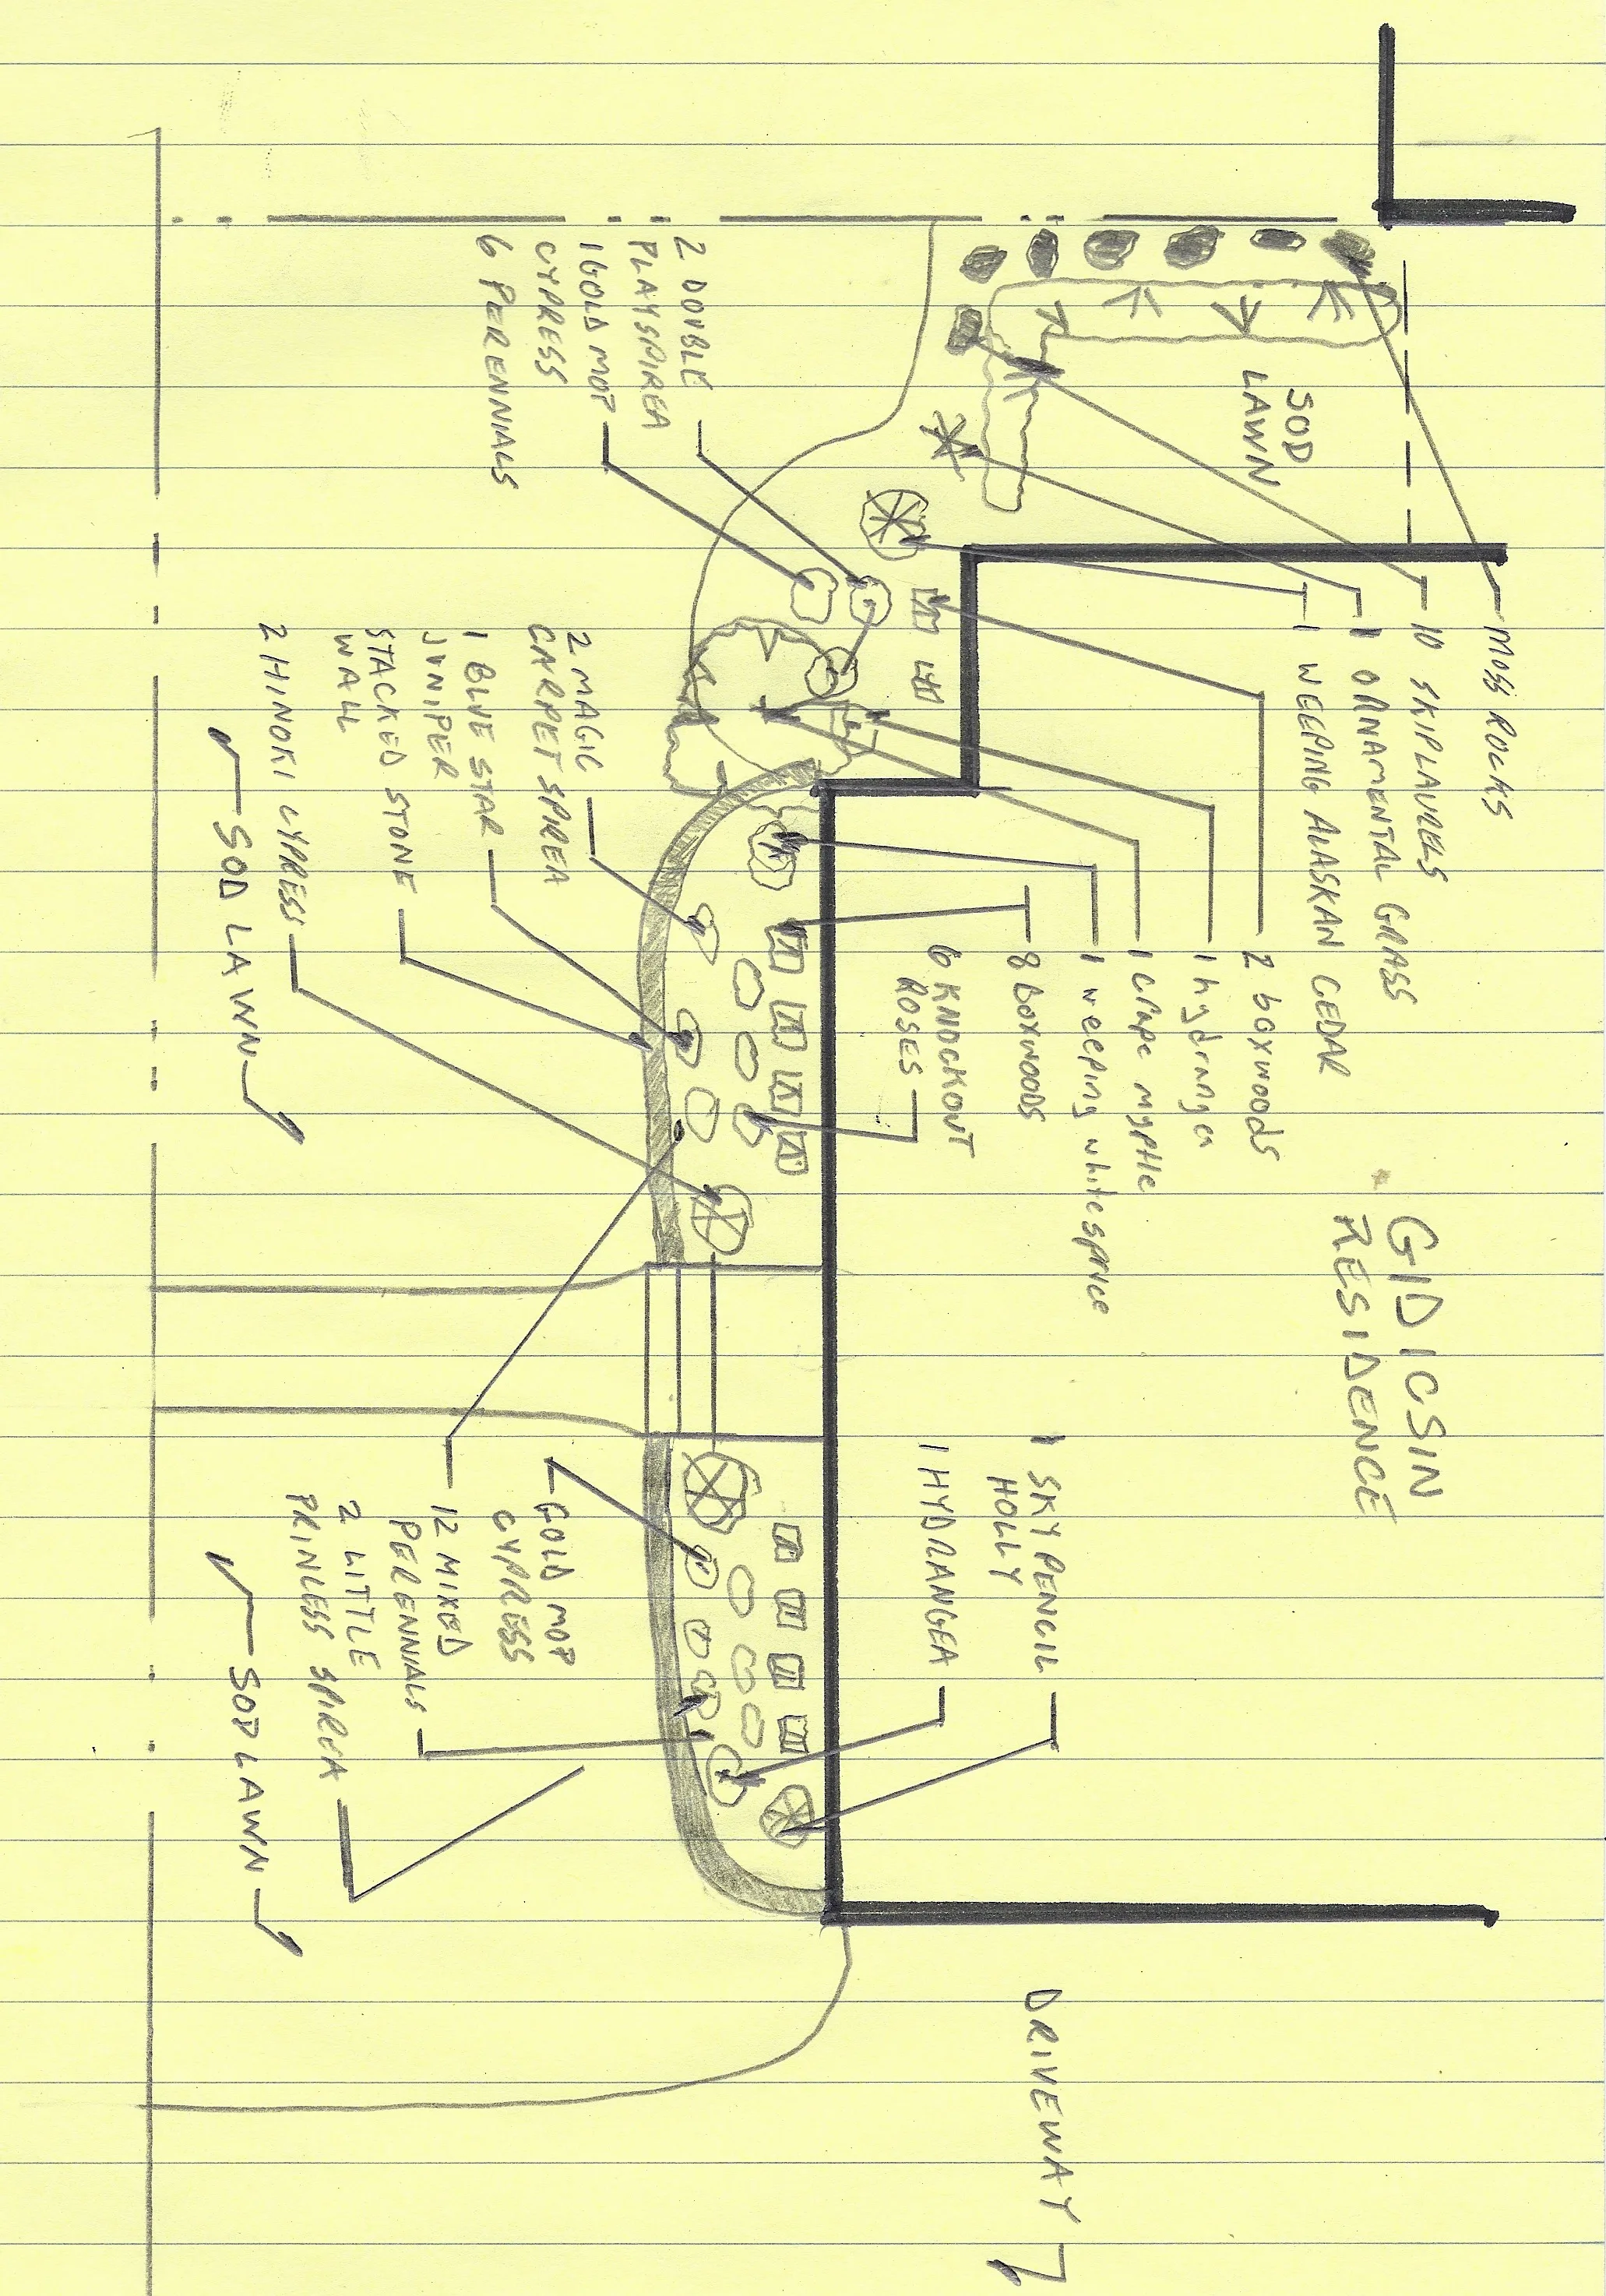 MOSS ROCKS
10 SKIPLAURELS
1 ORNAMENTAL GRASS
1 WEEPING ALASKAN CEDAR
SOD
LAWN
2 boxwoods
1 hydrangea
1 crape myrtle
1 weeping white spruce
8 BOXWOODS
6 KNOCKOUT
ROSES
GIDICSIN
RESIDENCE
1 SKY PENCIL
HOLLY
1 HYDRANGEA
DRIVEWAY
2 DOUBLE
PLAY SPIREA
1 GOLD MOP
CYPRESS
6 PERENNIALS
2 MAGIC
CARPET SPIREA
1 BLUE STAR
JUNIPER
STACKED STONE
WALL
2 HINOKI CYPRESS
SOD LAWN
GOLD MOP
CYPRESS
12 MIXED
PERENNIALS
2 LITTLE
PRINCESS SPIREA
SOD LAWN